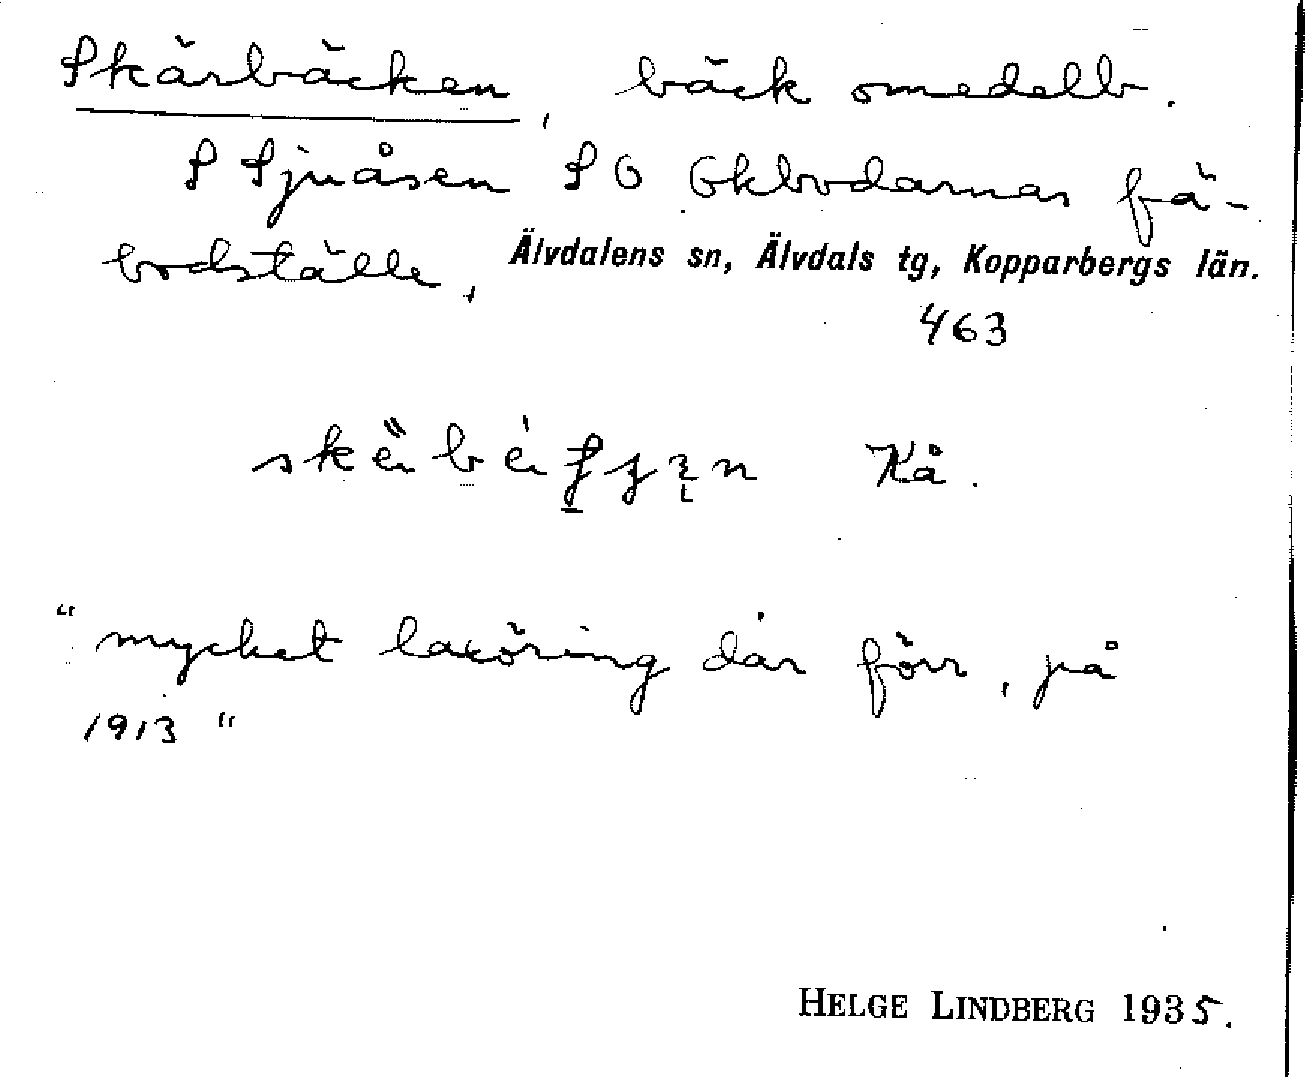 Skärbäcken, bäck omedelb.
S Sjuåsen S O Okbodarnas fä-
bodställe, Älvdalens sn, Älvdals tg, Kopparbergs län.
463
Kå.
"mycket laxöring där förr, på
1913"
HELGE LINDBERG 1935.